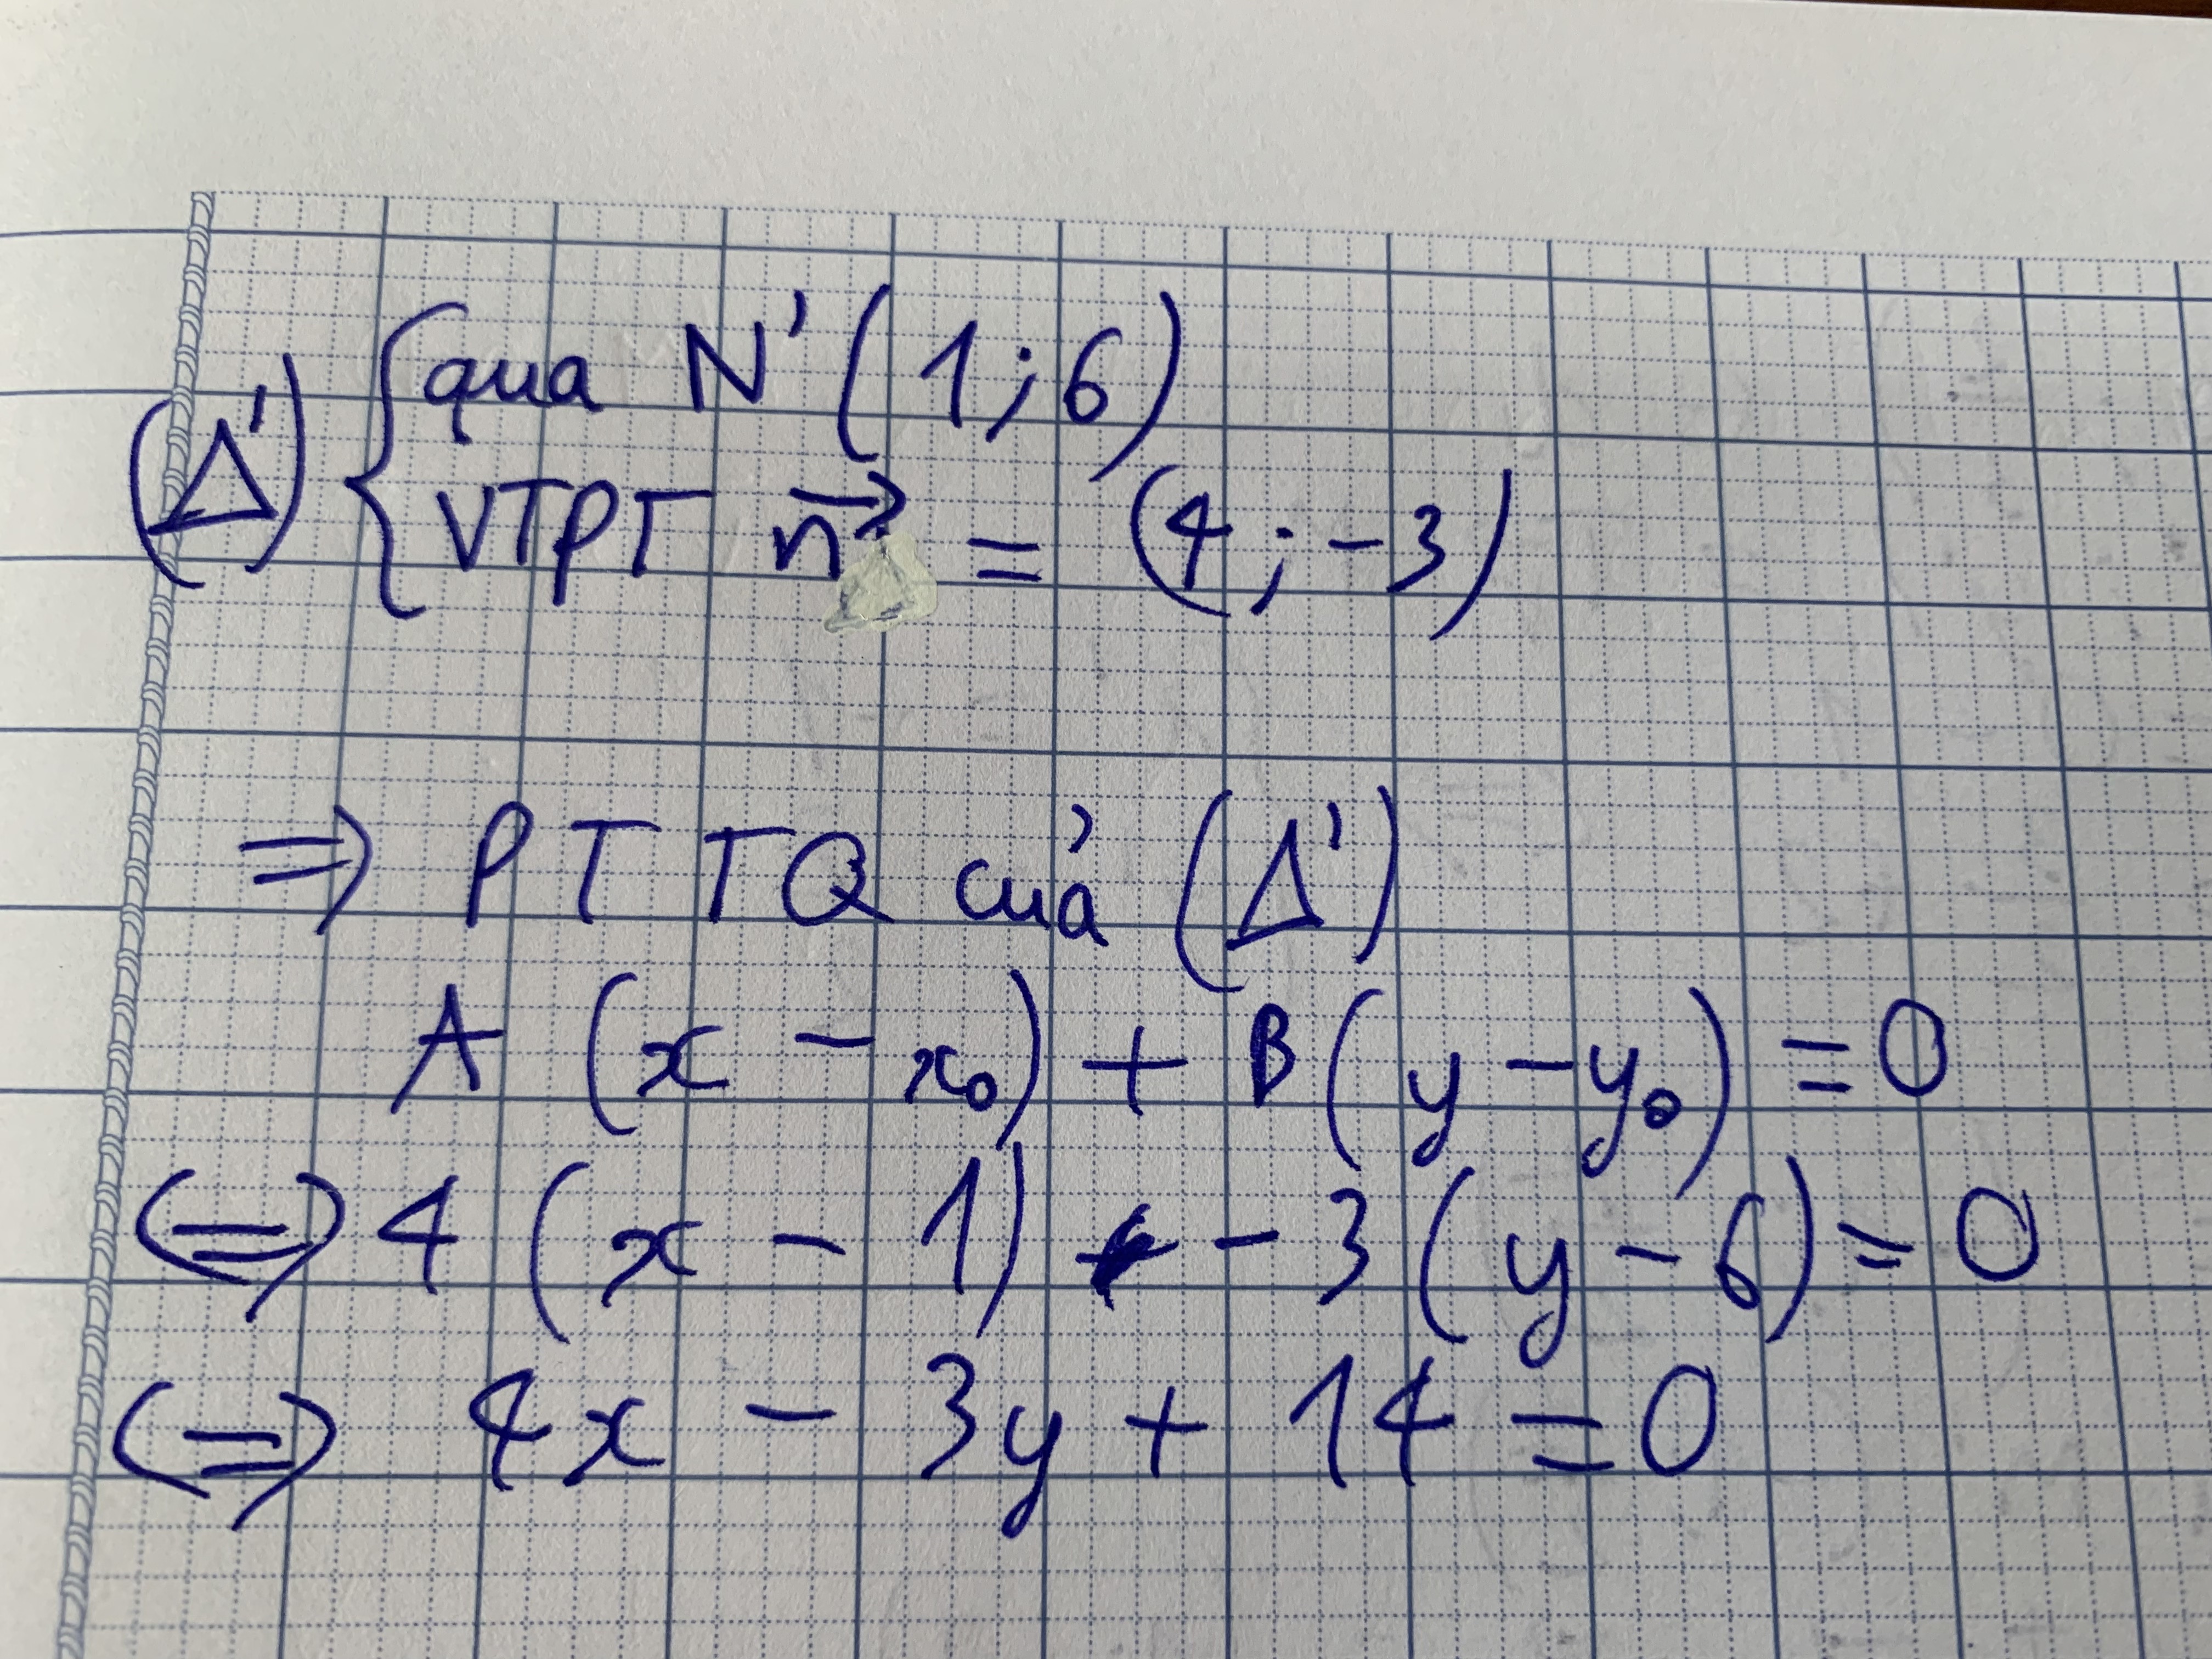 (Δ') { qua N'(1;6)
VTPT n⃗ = (4;-3)
=> PTTQ của (Δ')
A (x - x₀) + B(y - y₀) = 0
(=) 4 (x - 1) - 3 (y - 6) = 0
(=) 4x - 3y + 14 = 0